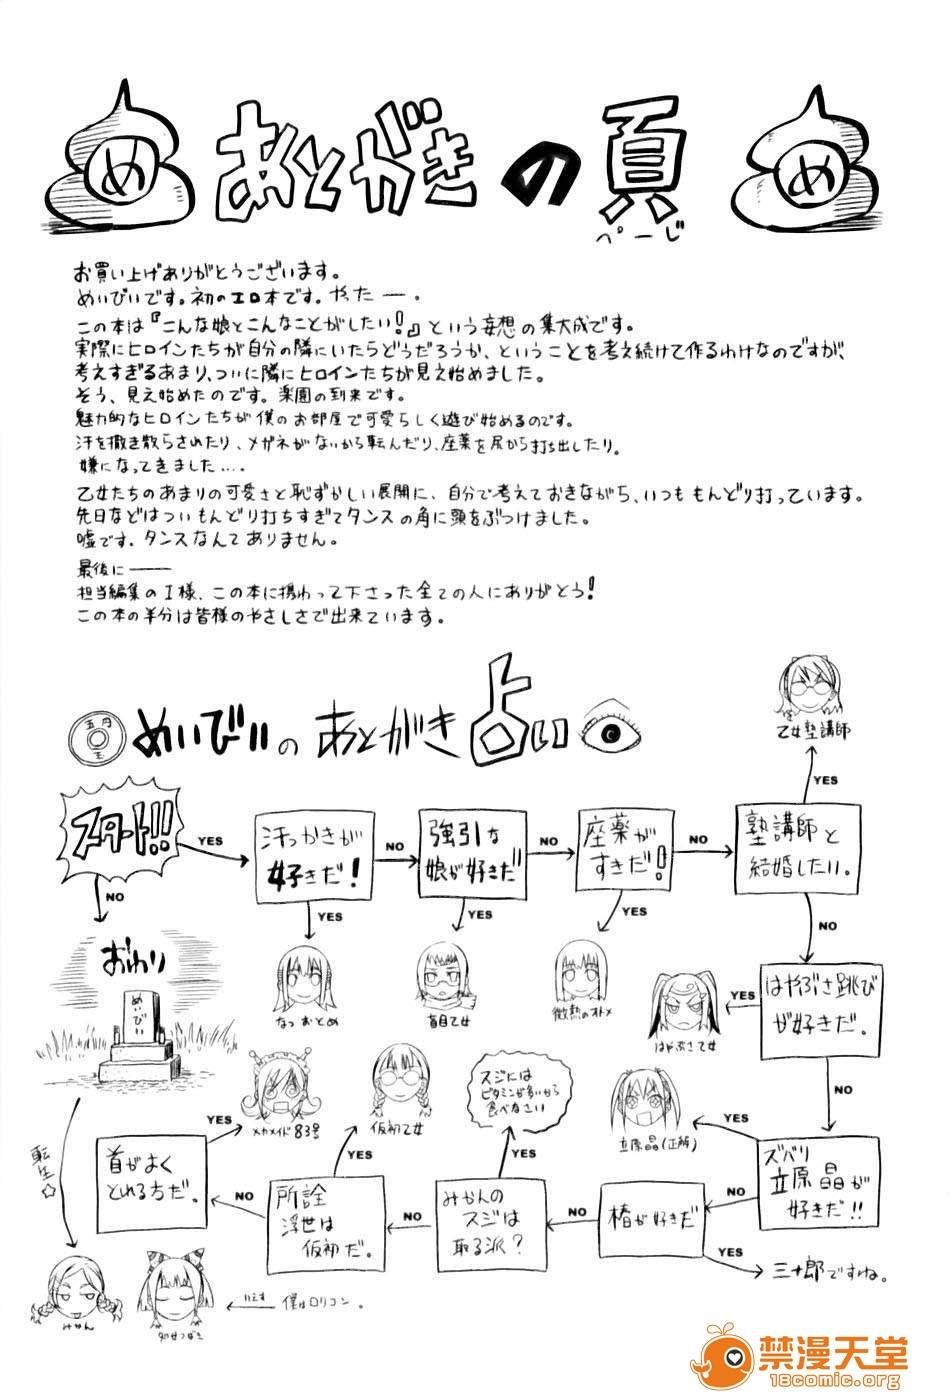 め
あとがきの頁
ぺーじ
め
お買い上げありがとうございます。
めいびいです。初のエロ本です。やったー。
この本は『こんな娘とこんなことがしたい!』という妄想の集大成です。
実際にヒロインたちが自分の隣にいたらどうだろうか、ということを考え続けて作るわけなのですが、
考えすぎるあまり、ついに隣にヒロインたちが見え始めました。
そう、見え始めたのです。楽園の到来です。
魅力的なヒロインたちが僕のお部屋で可愛らしく遊び始めるのです。
汗を撒き散らされたり、メガネがないから転んだり、座薬を尻から打ち出したり。
嫌になってきました....
乙女たちのあまりの可愛さと恥ずかしい展開に、自分で考えておきながら、いつももんどり打っています。
先日などはついもんどり打ちすぎてタンスの角に頭をぶつけました。
嘘です。タンスなんてありません。
最後に――
担当編集のI様、この本に携わって下さった全ての人にありがとう!
この本の半分は皆様のやさしさで出来ています。
五円
玉
めいびいのあとがき占い
スタート!!
YES
NO
汗っかきが
好きだ!
NO
YES
なつおとめ
強引な
娘が好きだ
NO
YES
盲目乙女
座薬が
すきだ!
NO
YES
微熱のオトメ
塾講師と
結婚したい。
YES
乙女塾講師
NO
はやぶさ跳び
が好きだ。
YES
はやぶさ乙女
NO
ズバリ
立原晶が
好きだ!!
YES
立原晶(正解)
NO
椿が好きだ
YES
三十郎ですね。
NO
みかんの
スジは
取る派?
YES
スジには
ビタミンが多いから
食べなさい
NO
所詮
浮世は
仮初だ。
YES
仮初乙女
NO
首がよく
とれる方だ。
YES
メカメイド83号
おわり
めいびい
転生☆
みかん
いえす
僕はロリコン。
禁漫天堂
18comic.org